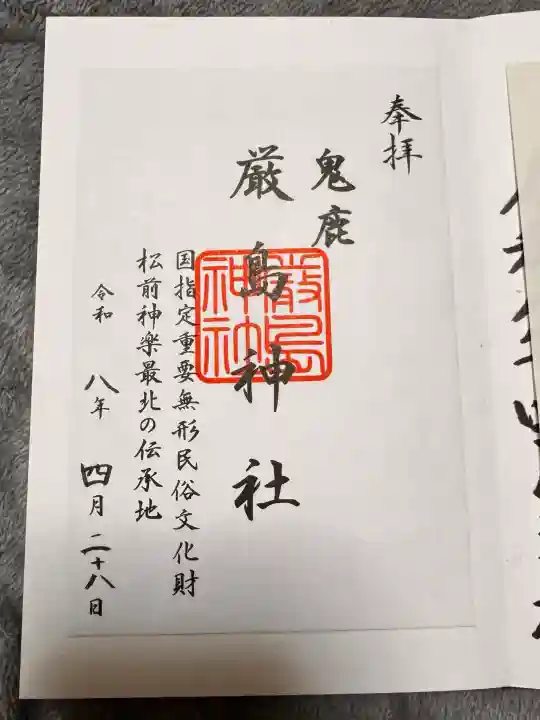 奉拝
鬼鹿
厳島神社
厳島神社
国指定重要無形民俗文化財
松前神楽最北の伝承地
令和八年四月二十八日